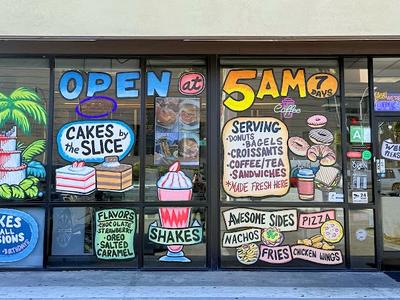 OPEN at
5AM 7 DAYS
Coffee
CAKES by
the SLICE
SERVING
•DONUTS
•BAGELS
•CROISSANTS
•COFFEE/TEA
•SANDWICHES
*MADE FRESH HERE*
A
FLAVORS
CHOCOLATE
STRAWBERRY
•OREO
•SALTED
CARAMEL
SHAKES
AWESOME SIDES
PIZZA
NACHOS
FRIES
CHICKEN WINGS